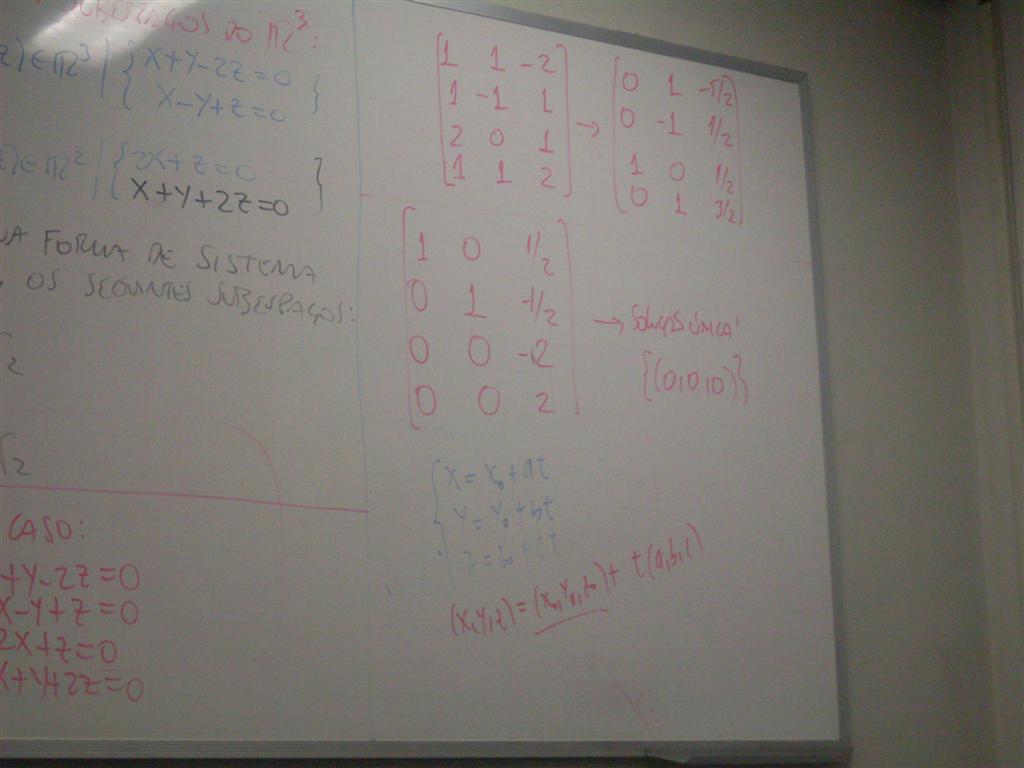 SUBESPAÇOS DO ℝ³:
z) ∈ ℝ³ | { X+Y-2Z=0
X-Y+Z=0 }
z) ∈ ℝ² | { 2X+Z=0
X+Y+2Z=0 }
NA FORMA DE SISTEMA
OS SEGUINTES SUBESPAÇOS:
2
Γ2
CASO:
+Y-2Z=0
X-Y+Z=0
2X+Z=0
X+Y+2Z=0
[1 1 -2] → [0 1 -5/2]
[1 -1 1] [0 -1 1/2]
[2 0 1] [1 0 1/2]
[1 1 2] [0 1 3/2]
[1 0 1/2]
[0 1 -1/2] → SOLUÇÃO ÚNICA!
[0 0 -2] {(0,0,0)}
[0 0 2]
{ X=X₀+at
Y=Y₀+bt
Z=Z₀+ct
(X,Y,Z)=(X₀,Y₀,Z₀)+ t(a,b,c)